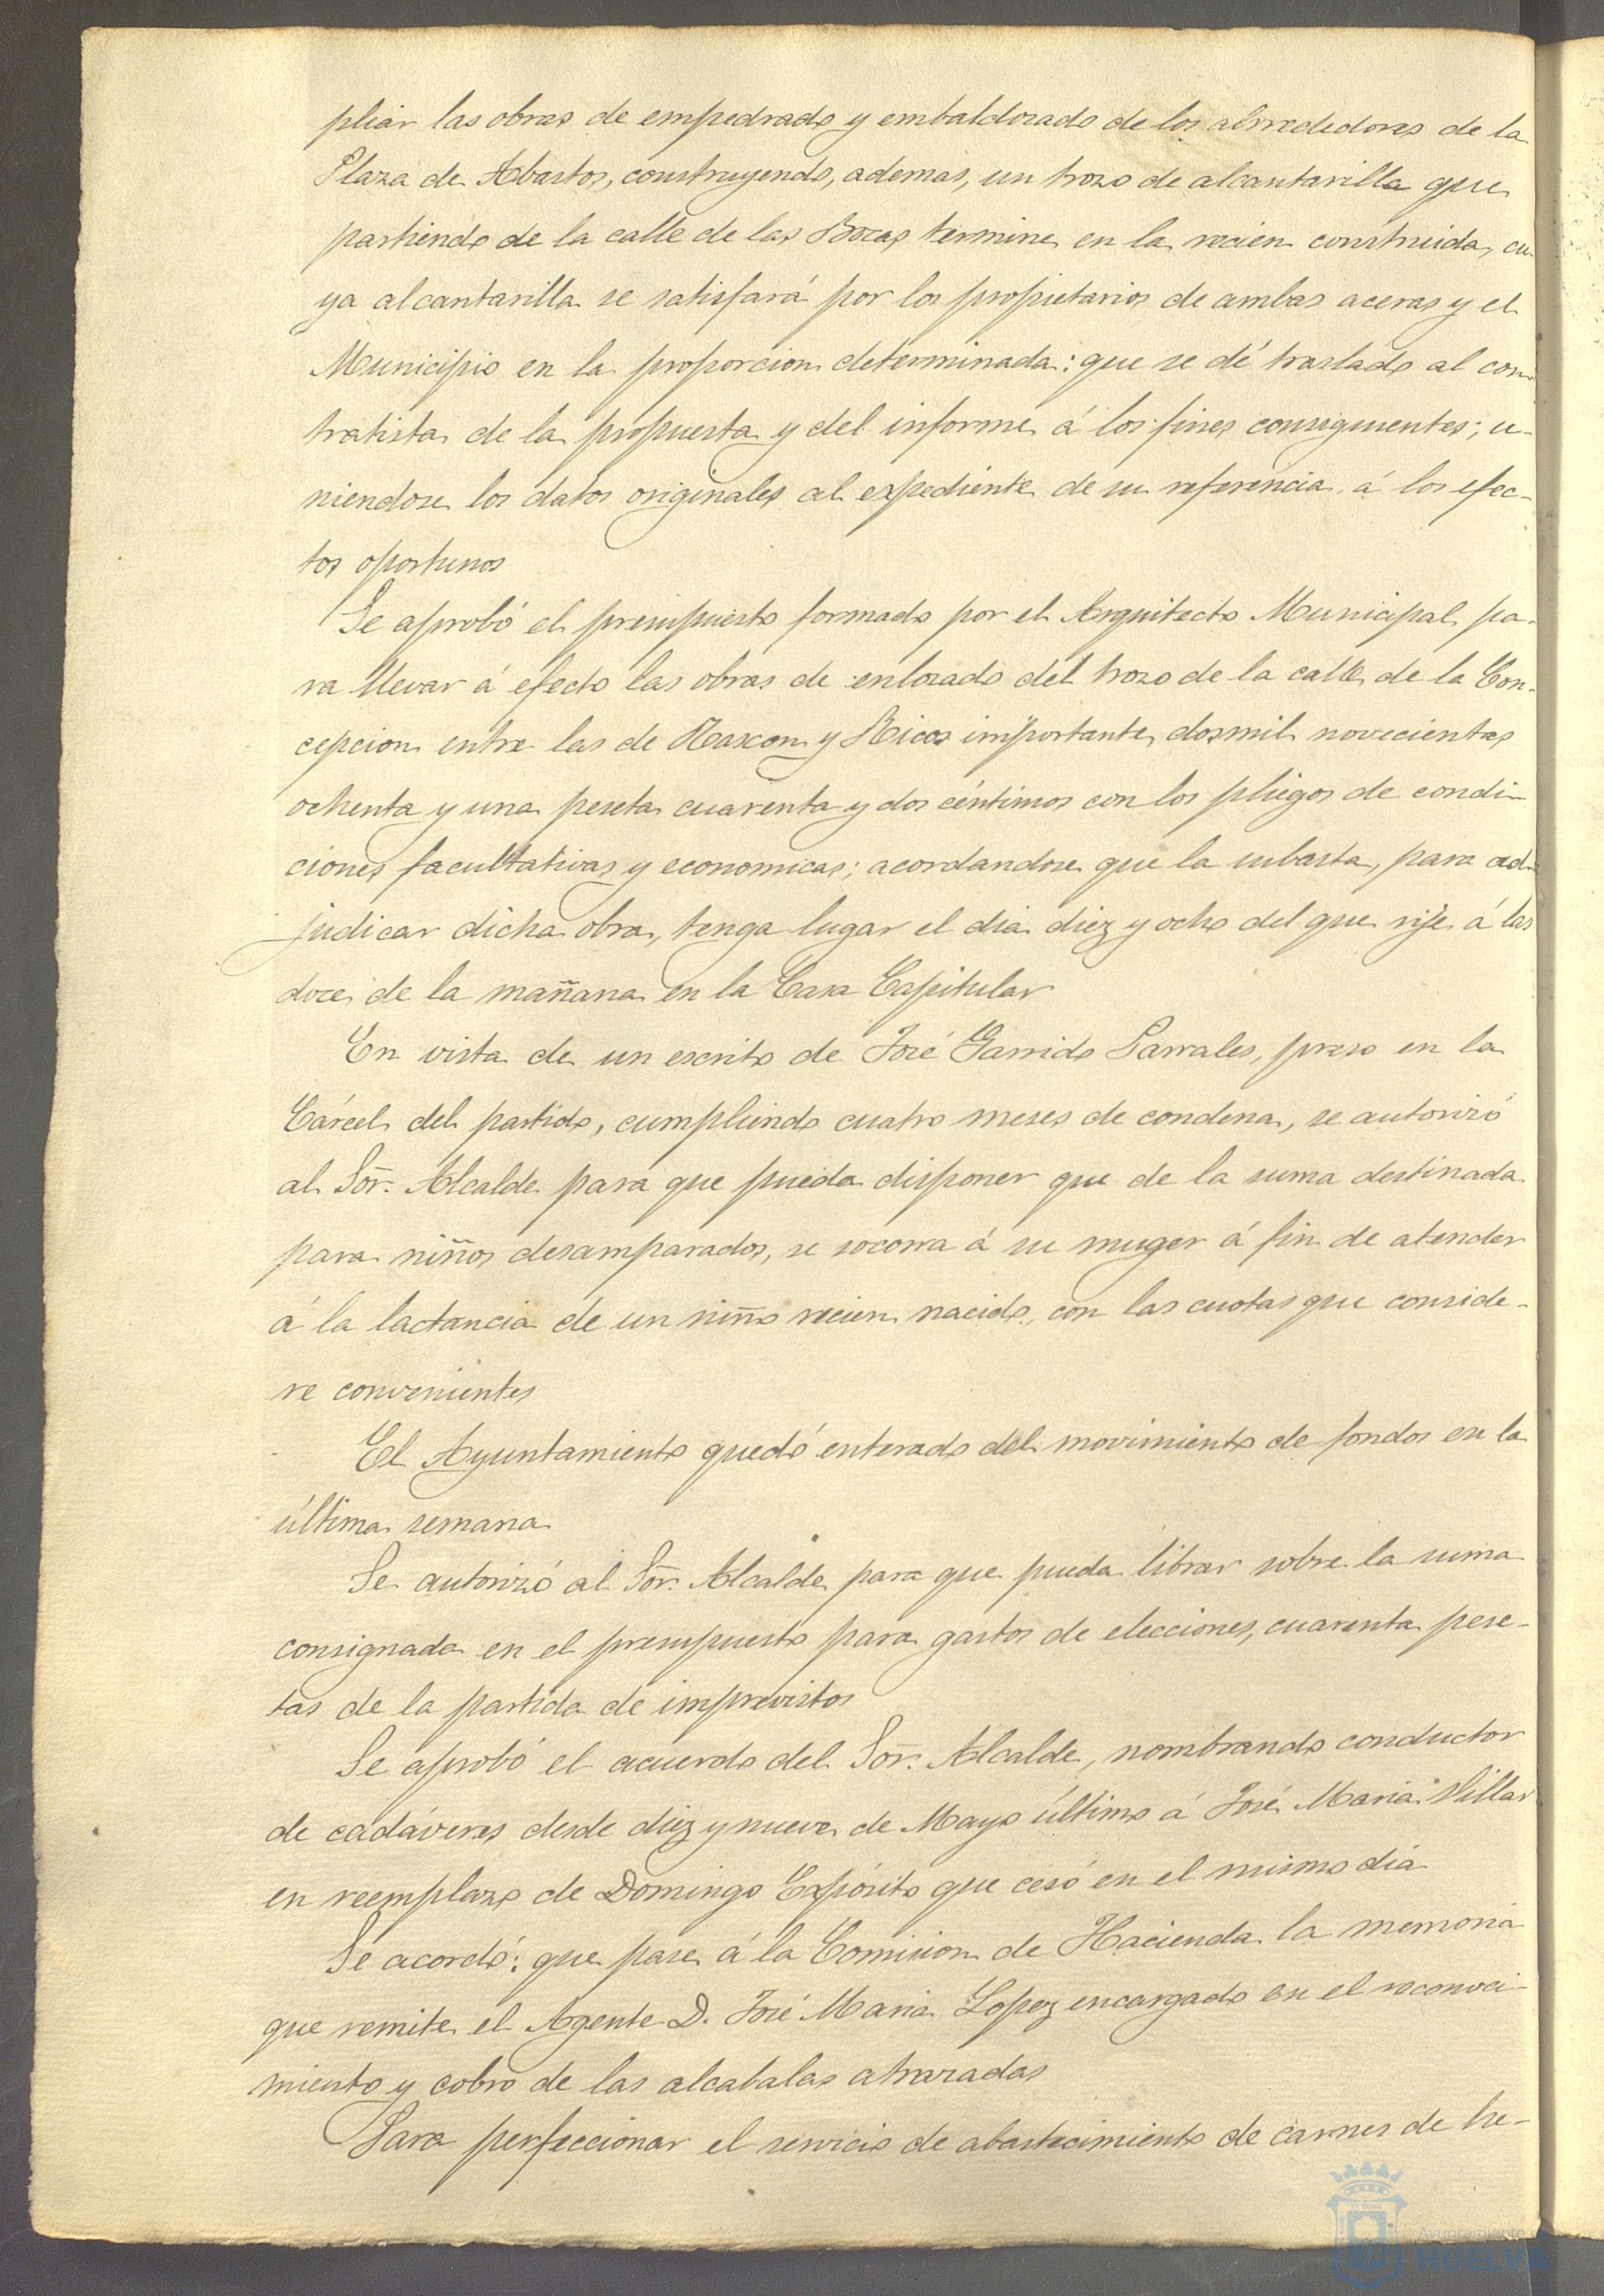 pliar las obras de empedrado y embaldosado de los alrrededores de la
Plaza de Abastos, construyendo, ademas, un trozo de alcantarilla que
partiendo de la calle de las Bocas termine en la recien construida, cu-
ya alcantarilla se satisfará por los propietarios de ambas aceras y el
Municipio en la proporcion determinada: que se dé traslado al con-
tratista de la propuesta y del informe á los fines consiguientes; u-
niendose los datos originales al expediente de su referencia á los efec-
tos oportunos
Se aprobó el presupuesto formado por el Arquitecto Municipal pa-
ra llevar á efecto las obras de enlosado del trozo de la calle de la Con-
cepcion entre las de Rascon y Ricos importante dosmil novecientas
ochenta y una peseta cuarenta y dos céntimos con los pliegos de condi-
ciones facultativas y economicas; acordandose que la subasta, para ad-
judicar dicha obra, tenga lugar el dia diez y ocho del que rije á las
doce de la mañana en la Casa Capitular
En vista de un escrito de José Garrido Parrales, preso en la
Cárcel del partido, cumpliendo cuatro meses de condena, se autorizó
al Sor. Alcalde para que pueda disponer que de la suma destinada
para niños desamparados, se socorra á su muger á fin de atender
á la lactancia de un niño recien nacido, con las cuotas que conside-
re convenientes
El Ayuntamiento quedó enterado del movimiento de fondos en la
última semana
Se autorizó al Sor. Alcalde para que pueda librar sobre la suma
consignada en el presupuesto para gastos de elecciones, cuarenta pese-
tas de la partida de imprevistos
Se aprobó el acuerdo del Sor. Alcalde, nombrando conductor
de cadáveres desde diez y nueve de Mayo último á José Maria Villar
en reemplazo de Domingo Expósito que cesó en el mismo dia
Se acordó: que pase á la Comision de Hacienda la memoria
que remite el Agente D. José Maria Lopez encargado en el reconoci-
miento y cobro de las alcabalas atrazadas
Para perfeccionar el servicio de abastecimiento de carnes de he-
Ayuntamiento de
HUELVA